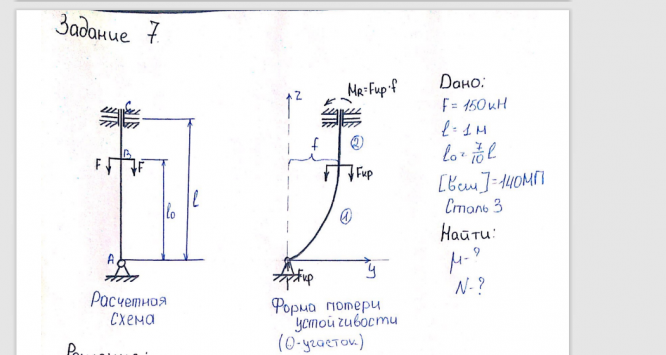 Задание 7
C
B
F F
l₀
l
A
Расчетная
схема
z
Mʀ=Fкр·f
f
②
Fкр
①
Fкр
y
Форма потери
устойчивости
(0-участок)
Дано:
F=150кН
l=1м
l₀=7/10 l
[бсж]=140МП
Сталь 3
Найти:
μ-?
N-?